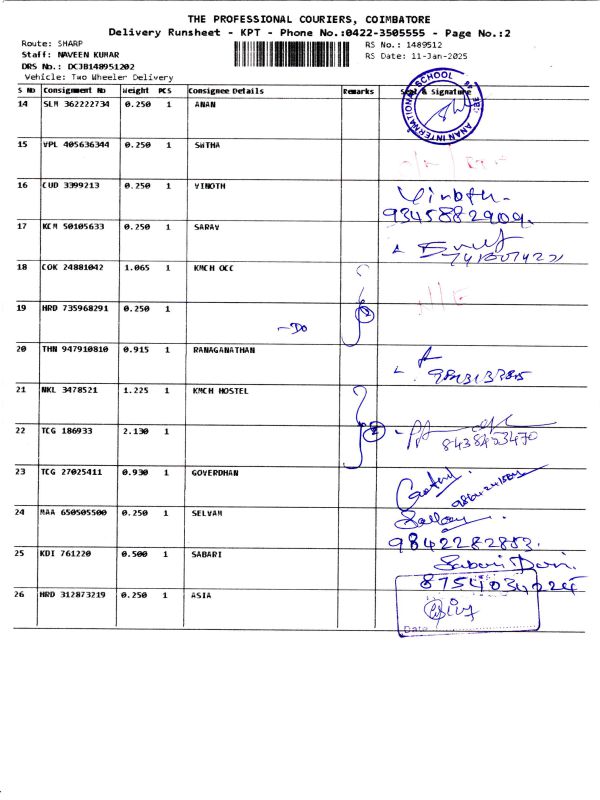 THE PROFESSIONAL COURIERS, COIMBATORE
Delivery Runsheet - KPT - Phone No.:0422-3505555 - Page No.:2
Route: SHARP
RS No.: 1489512
Staff: NAVEEN KUMAR
RS Date: 11-Jan-2025
DRS No.: DCJB148951202
Vehicle: Two Wheeler Delivery
S No Consignment No Weight PCS Consignee Details Remarks Seal & Signature
ANAN INTERNATIONAL SCHOOL CBE
14 SLM 362222734 0.250 1 ANAN
15 VPL 405636344 0.250 1 SWTHA
16 CUD 3399213 0.250 1 VINOTH
Vinoth.
9345882909.
17 KCM 50105633 0.250 1 SARAV
18 COK 24881042 1.065 1 KMCH OCC
19 HRD 735968291 0.250 1
~Do 2
20 THN 947910810 0.915 1 RANAGANATHAN
21 NKL 3478521 1.225 1 KMCH HOSTEL
22 TCG 186933 2.130 1
2
8438453470
23 TCG 27025411 0.930 1 GOVERDHAN
24 MAA 650505500 0.250 1 SELVAM
9842282853.
25 KDI 761220 0.500 1 SABARI
Sabari
8754034224
26 HRD 312873219 0.250 1 ASIA
Date